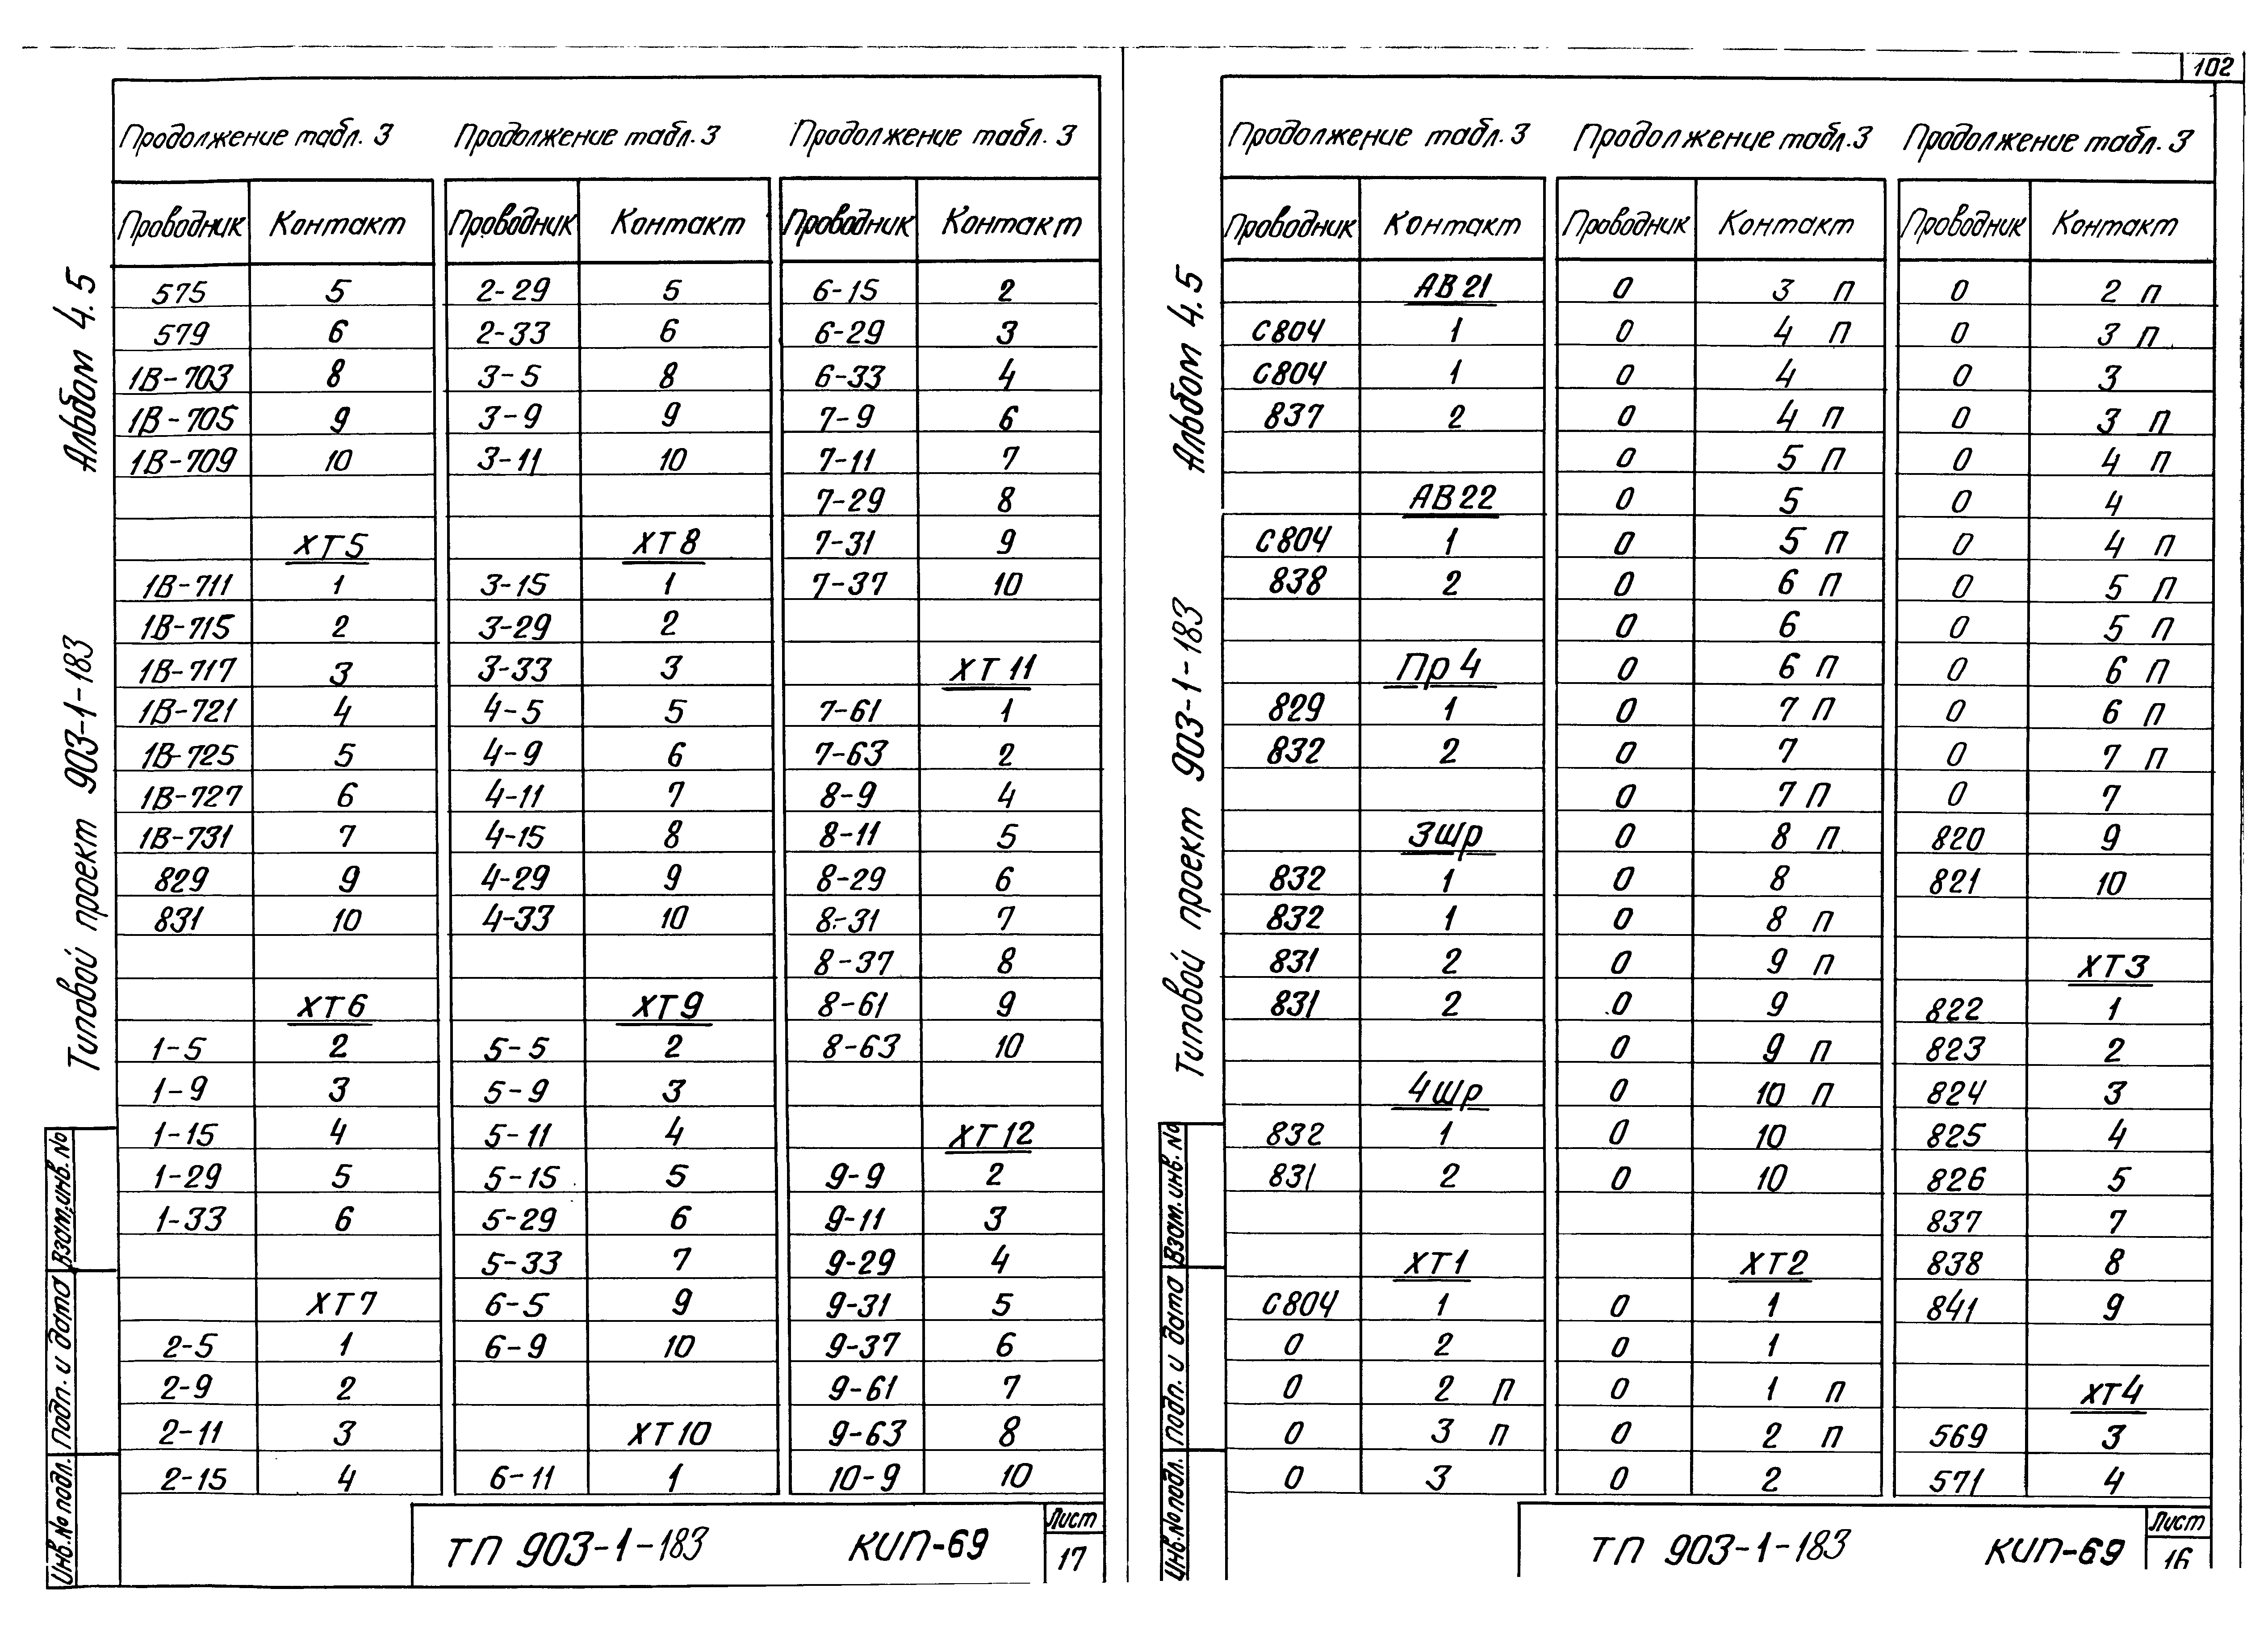 102
Альбом 4.5
Типовой проект 903-1-183
Взам. инв. №
Подп. и дата
Инв. № подл.
Продолжение табл. 3
Проводник Контакт
575 5
579 6
1В-703 8
1В-705 9
1В-709 10
ХТ5
1В-711 1
1В-715 2
1В-717 3
1В-721 4
1В-725 5
1В-727 6
1В-731 7
829 9
831 10
ХТ6
1-5 2
1-9 3
1-15 4
1-29 5
1-33 6
ХТ7
2-5 1
2-9 2
2-11 3
2-15 4
Продолжение табл. 3
Проводник Контакт
2-29 5
2-33 6
3-5 8
3-9 9
3-11 10
ХТ8
3-15 1
3-29 2
3-33 3
4-5 5
4-9 6
4-11 7
4-15 8
4-29 9
4-33 10
ХТ9
5-5 2
5-9 3
5-11 4
5-15 5
5-29 6
5-33 7
6-5 9
6-9 10
ХТ10
6-11 1
Продолжение табл. 3
Проводник Контакт
6-15 2
6-29 3
6-33 4
7-9 6
7-11 7
7-29 8
7-31 9
7-37 10
ХТ11
7-61 1
7-63 2
8-9 4
8-11 5
8-29 6
8-31 7
8-37 8
8-61 9
8-63 10
ХТ12
9-9 2
9-11 3
9-29 4
9-31 5
9-37 6
9-61 7
9-63 8
10-9 10
ТП 903-1-183 КИП-69
Лист
17
Альбом 4.5
Типовой проект 903-1-183
Взам. инв. №
Подп. и дата
Инв. № подл.
Продолжение табл. 3
Проводник Контакт
АВ21
С804 1
С804 1
837 2
АВ22
С804 1
838 2
Пр4
829 1
832 2
3Шр
832 1
832 1
831 2
831 2
4Шр
832 1
831 2
ХТ1
С804 1
0 2
0 2 П
0 3 П
0 3
Продолжение табл. 3
Проводник Контакт
0 3 П
0 4 П
0 4
0 4 П
0 5 П
0 5
0 5 П
0 6 П
0 6
0 6 П
0 7 П
0 7
0 7 П
0 8 П
0 8
0 8 П
0 9 П
0 9
0 9 П
0 10 П
0 10
0 10
ХТ2
0 1
0 1
0 1 П
0 2 П
0 2
Продолжение табл. 3
Проводник Контакт
0 2 П
0 3 П
0 3
0 3 П
0 4 П
0 4
0 4 П
0 5 П
0 5 П
0 6 П
0 6 П
0 7 П
0 7
820 9
821 10
ХТ3
822 1
823 2
824 3
825 4
826 5
837 7
838 8
841 9
ХТ4
569 3
571 4
ТП 903-1-183 КИП-69
Лист
16